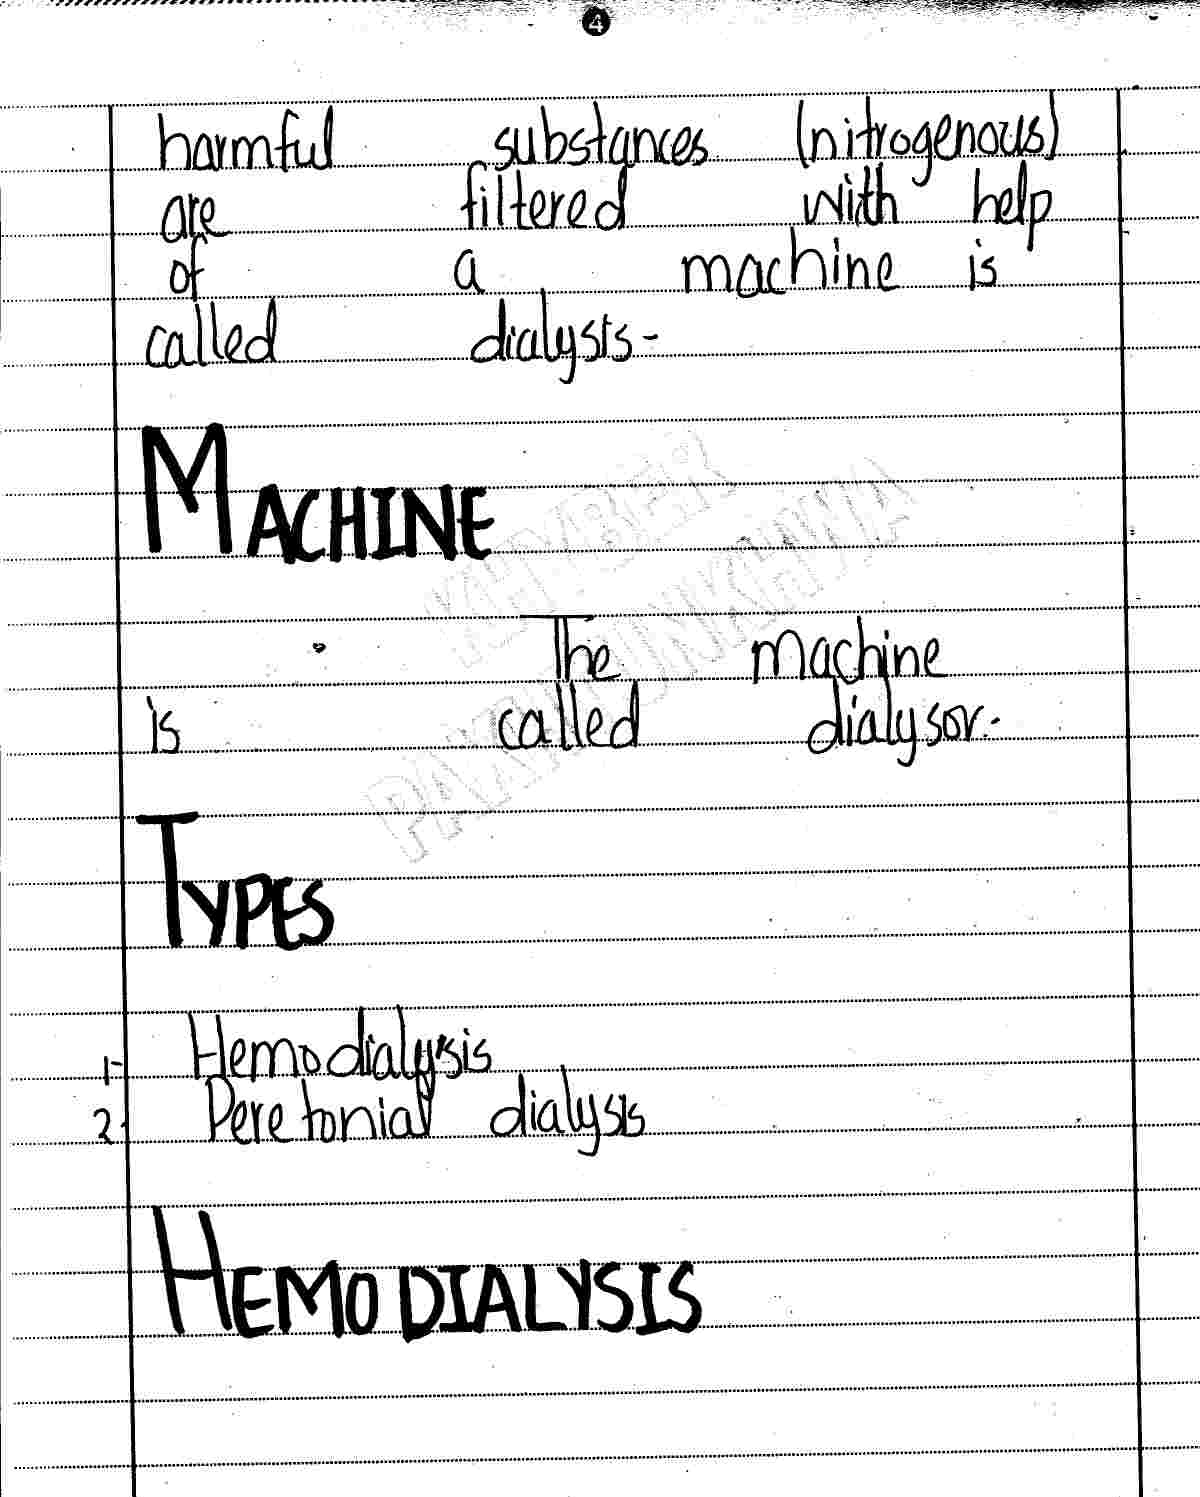 4
harmful substances (nitrogenous)
are filtered with help
of a machine is
called dialysis-
MACHINE
KHYBER
PAKHTUNKHWA
The machine
is called dialysor.
TYPES
1- Hemodialysis
2- Peretonial dialysis
HEMODIALYSIS